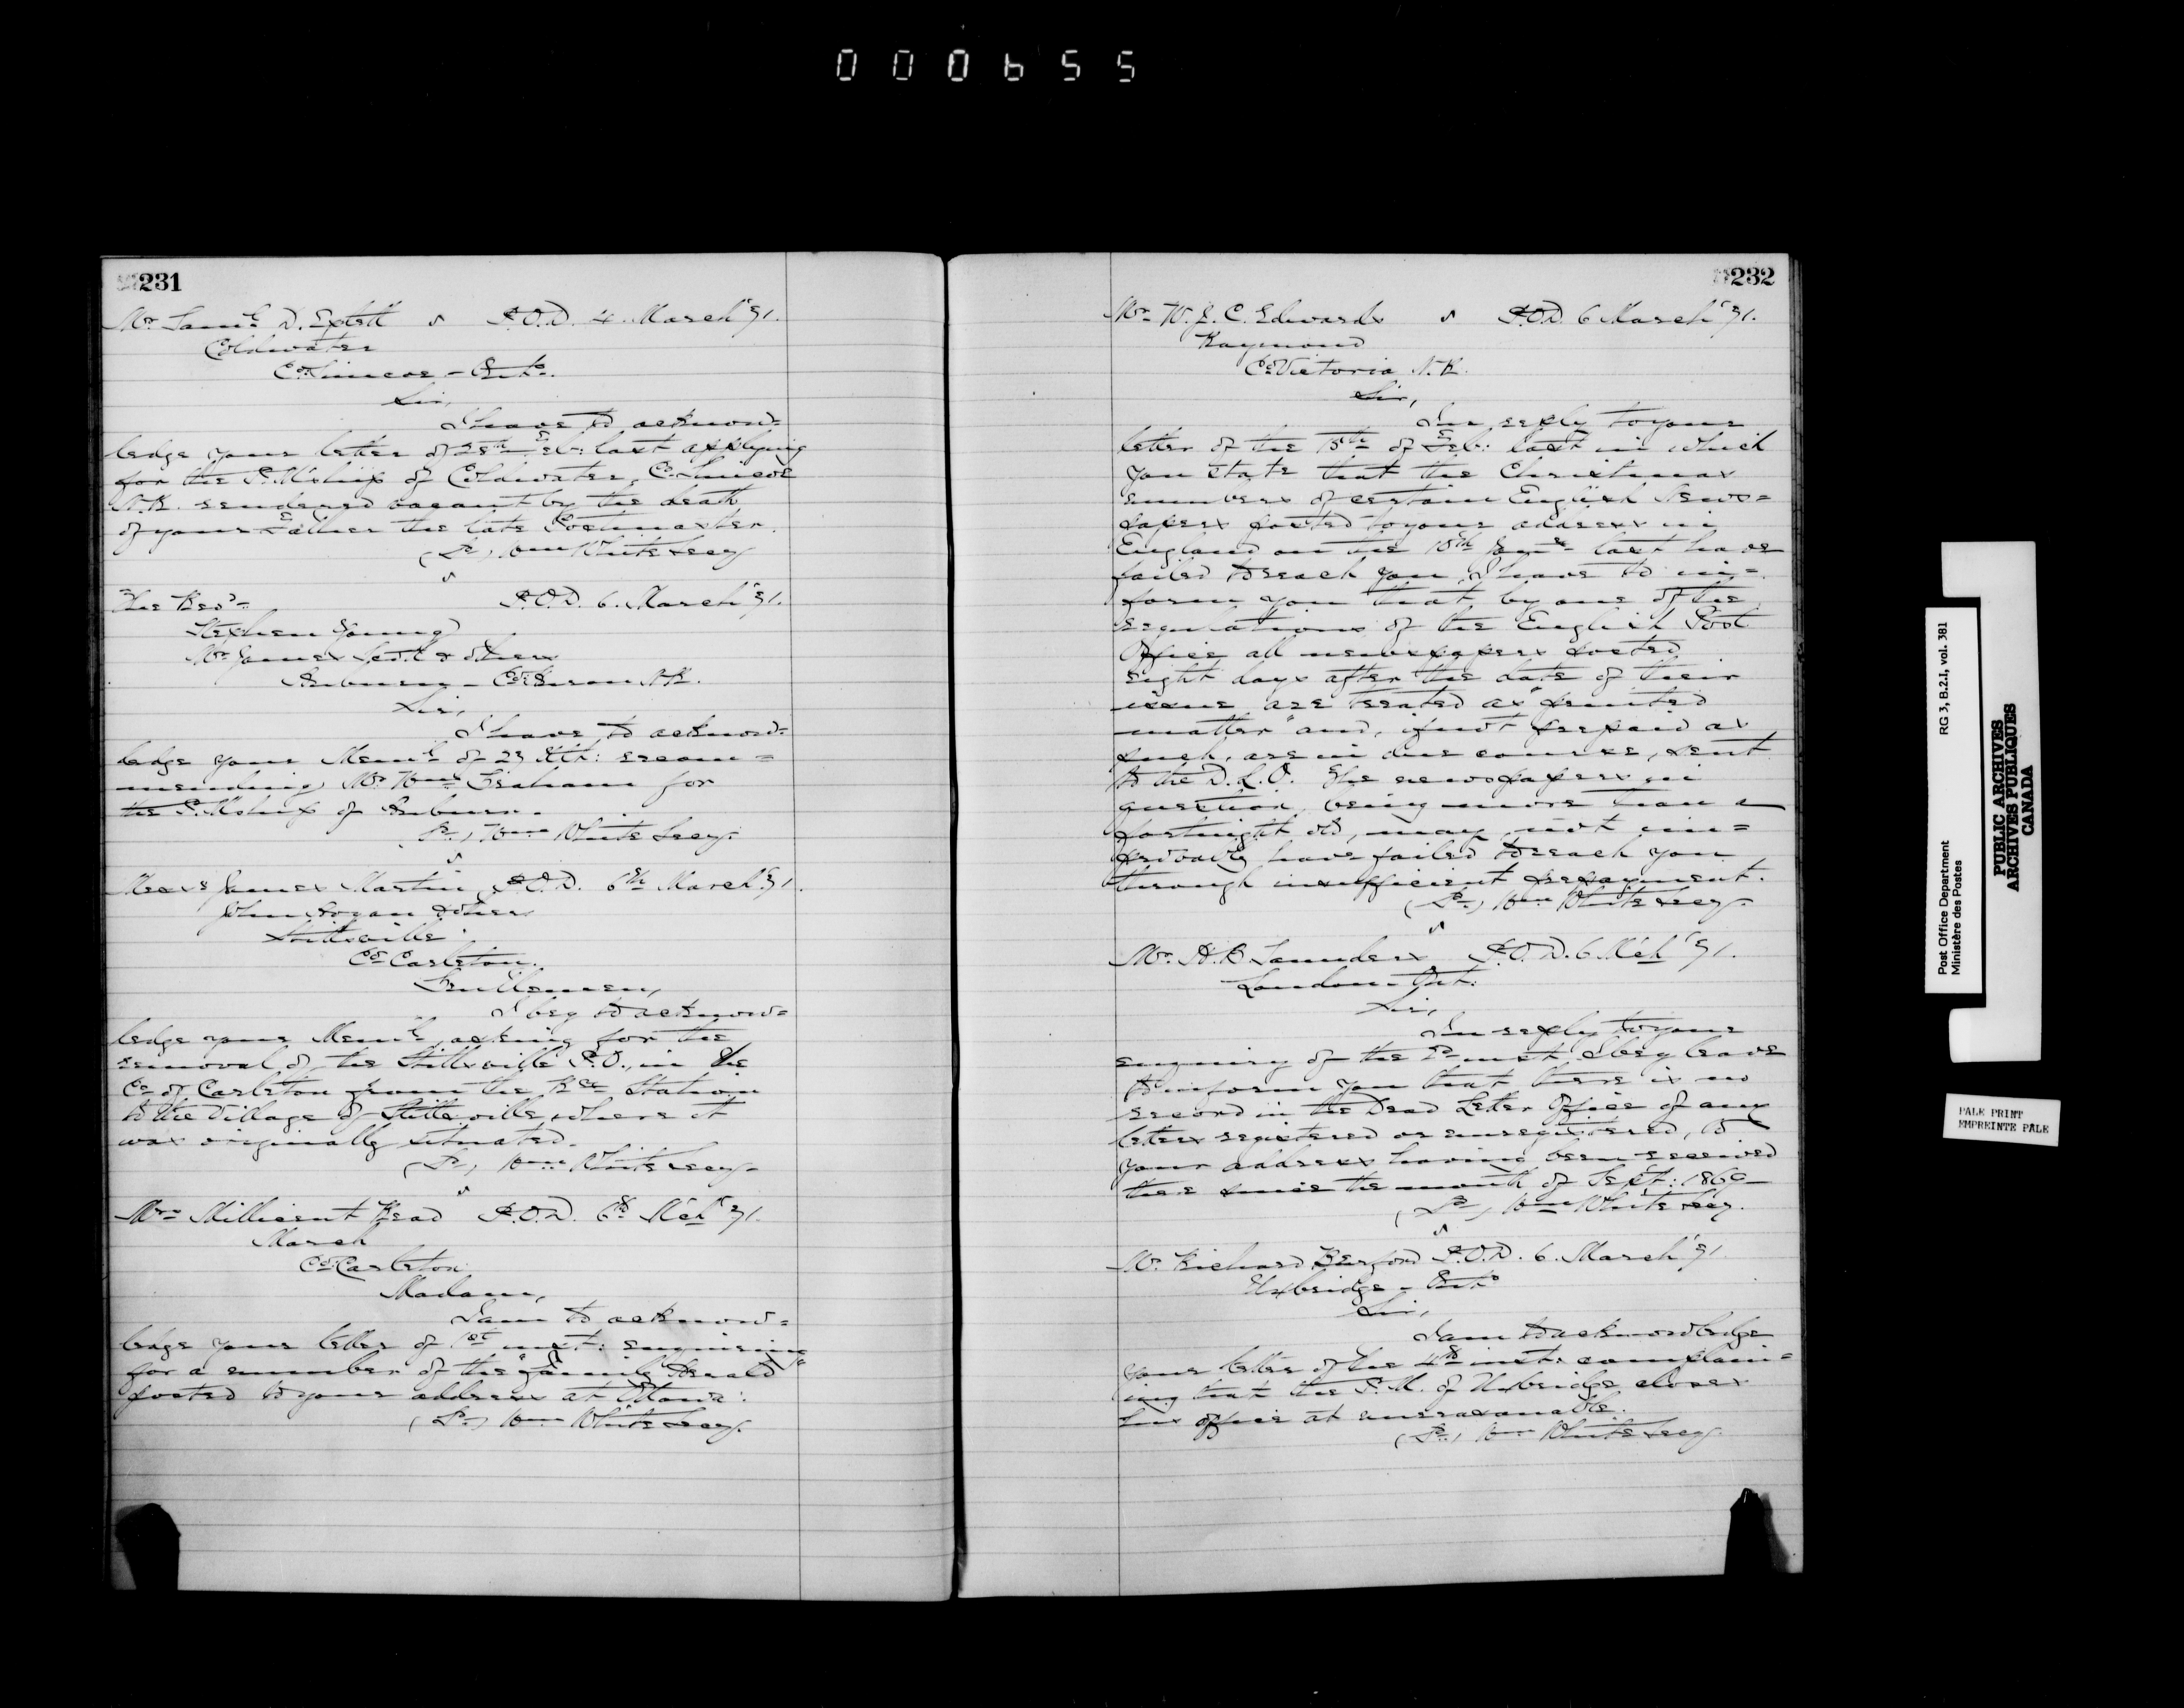 000655
231
Mr Saml D. Eplett P.O.D. 4 March '71.
Coldwater
Co. Simcoe - Onto.
Sir,
I have to acknow=
ledge your letter of 28th Feb: last applying
for the P. M'ship of Coldwater, Co. Simcoe
N.R. rendered vacant by the death
of your Father the late Postmaster.
(Sd.) Wm White Secy
The Revd. P.O.D. 6. March '71.
Stephen Young
Mr James Scott & others
Co. Huron N.R.
Sir,
I have to acknow=
ledge your Meml of 23 Ult: recom=
mending Mr Wm Graham for
the P. M'ship of
(Sd.) Wm White Secy.
Messrs James Martin, P.O.D. 6th March '71.
John Logan & others
Stittsville
Co Carleton.
Gentlemen,
I beg to acknow=
ledge your Meml asking for the
removal of the Stittsville P.O., in the
Co of Carleton from the Station
to the Village of Stittsville, where it
was originally situated.
(Sd.) Wm White Secy.
Mrs Millicent Read P.O.D. 6th Mch '71.
March
Co. Carleton
Madam,
I am to acknow=
ledge your letter of 1st inst: enquiring
for a number of the "Family Herald"
posted to your address at Ottawa.
(Sd.) Wm White Secy.
232
Mr W. J. C. Edwards P.O.D. 6 March '71.
Raymond
Co Victoria N.R.
Sir,
In reply to your
letter of the 15th of Feb: last in which
you state that the Christmas
numbers of certain English News=
papers posted to your address in
England on the 10th Jany last have
failed to reach you, I have to in=
form you that by one of the
regulations of the English Post
Office all newspapers posted
eight days after the date of their
issue are treated as "printed
matter" and, if not prepaid as
such, are in due course, sent
to the D.L.O. The newspapers in
question, being more than a
fortnight old, may not im=
probably have failed to reach you
through insufficient prepayment.
(Sd.) Wm White Secy.
Mr. H. B. Saunders P.O.D. 6. Mch '71.
London - Ont:
Sir,
In reply to your
enquiry of the 2d inst. I beg leave
to inform you that there is no
record in the Dead Letter Office of any
letters registered or unregistered, to
your address having been received
there since the month of Sept: 1869
(Sd) Wm White Secy.
Mr. Richard P.O.D. 6. March '71
Uxbridge - Onto
Sir,
I am to acknowledge
your letter of the 4th inst: complain=
ing that the P.M. of Uxbridge closes
his office at unreasonable.
(Sd.) Wm White Secy.
Post Office Department RG 3, B.2.I, vol. 381
Ministère des Postes
PUBLIC ARCHIVES
ARCHIVES PUBLIQUES
CANADA
PALE PRINT
EMPREINTE PALE